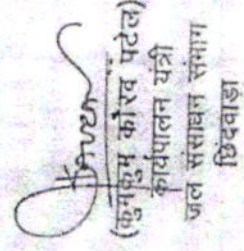 (कुमकुम कौरव पटेल)
कार्यपालन यंत्री
जल संसाधन संभाग
छिंदवाड़ा